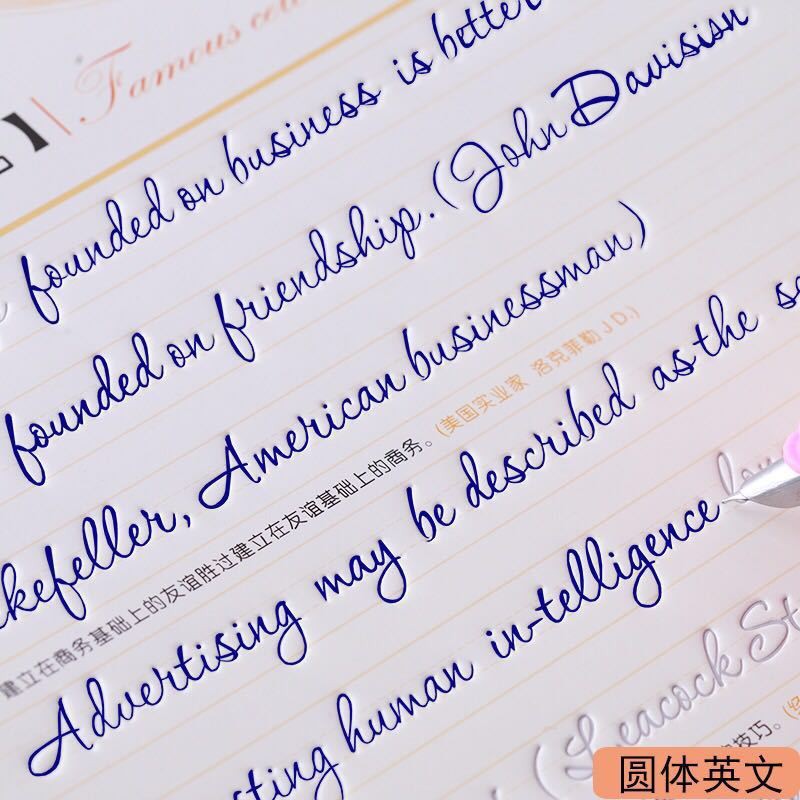 】 Famous
founded on business is better
founded on friendship. (John Davisisn
kefeller, American businessman)
建立在商务基础上的友谊胜过建立在友谊基础上的商务。(美国实业家 洛克菲勒 J D.)
Advertising may be described as the sc
sting human in-telligence
(Leacock St
技巧。
圆体英文